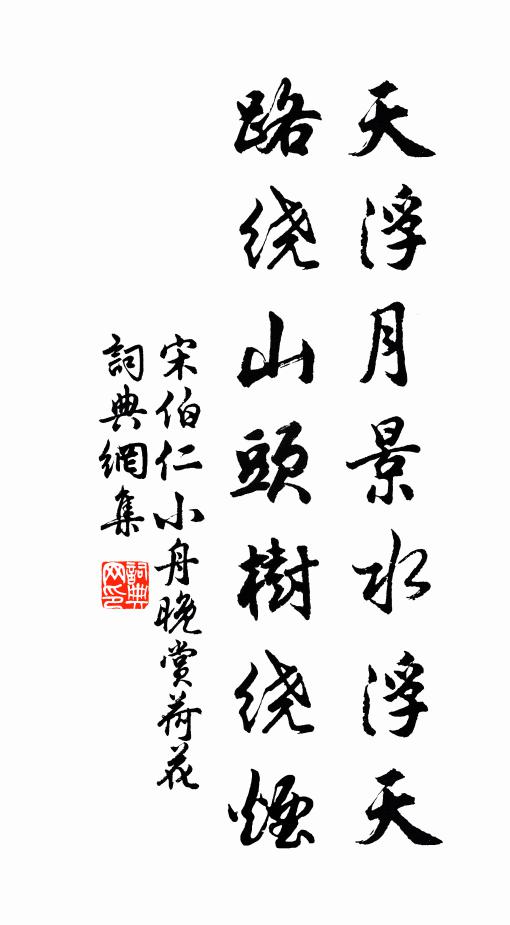 天浮月景水浮天
路绕山頭樹绕煙
宋伯仁小舟晚賞荷花
詞典網集
詞典网印